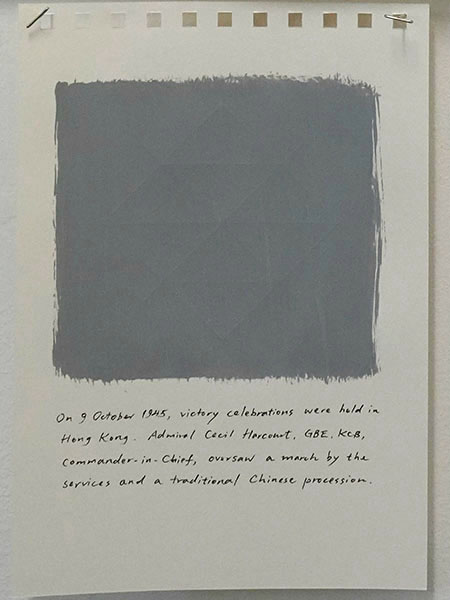 On 9 October 1945, victory celebrations were held in
Hong Kong. Admiral Cecil Harcourt, GBE, KCB,
Commander-in-Chief, oversaw a march by the
services and a traditional Chinese procession.